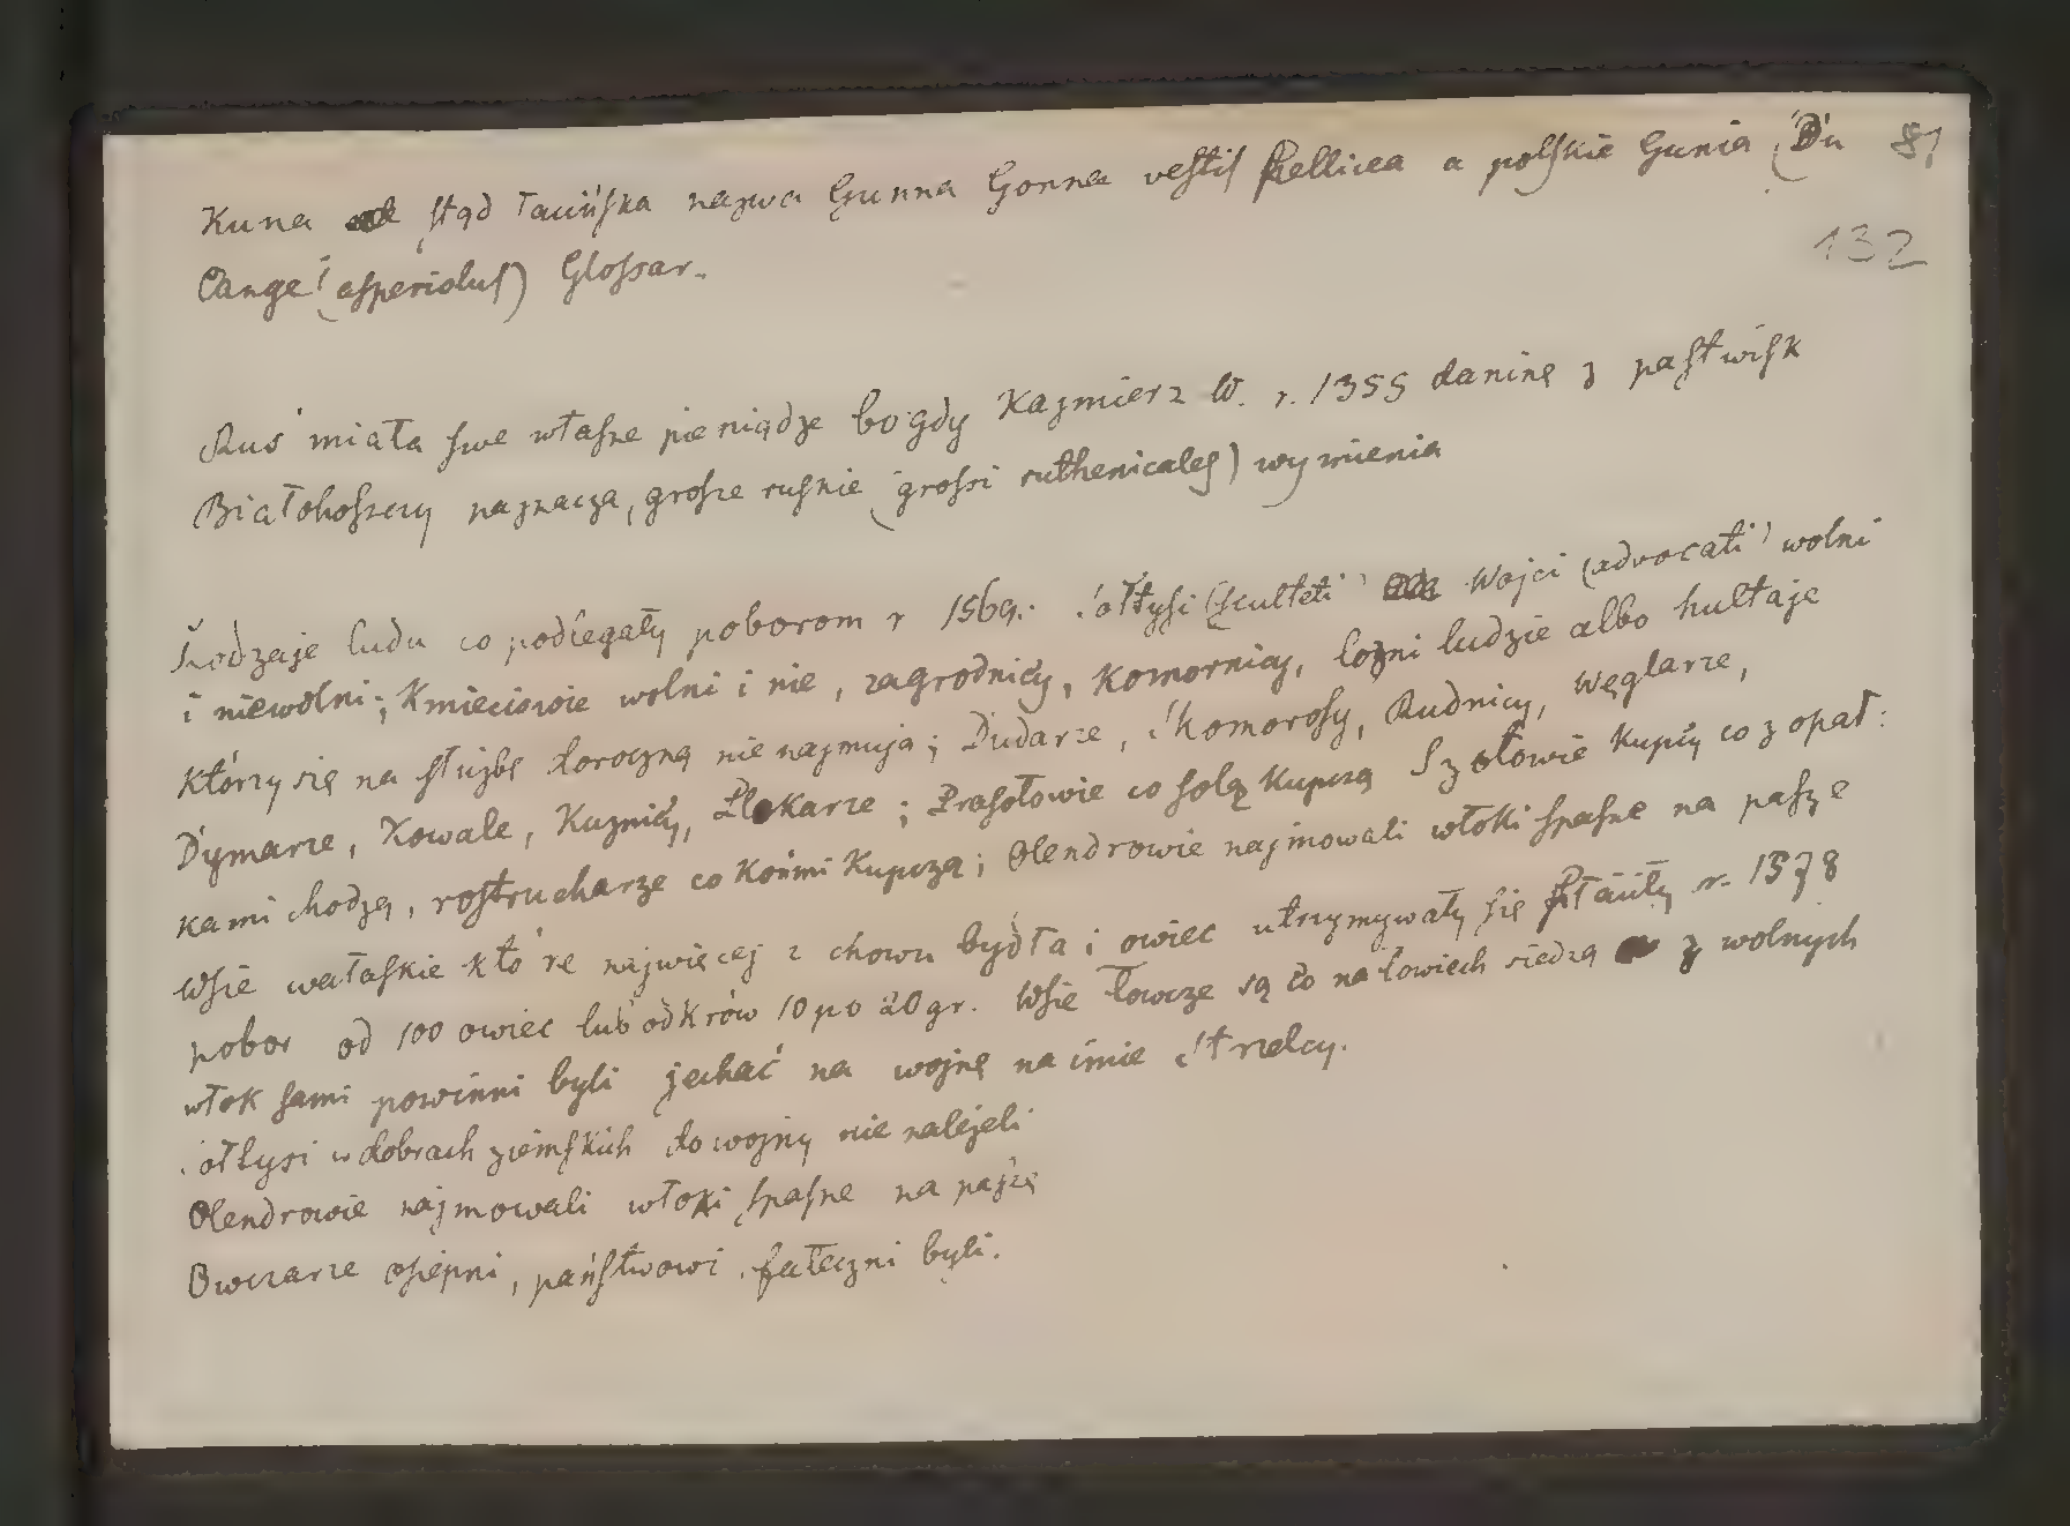 Kuna stąd łacińska nazwa Gunna Gonna vestis pellicea a polskie Gunia (Du 81
Cange (asperiolus) Glossar.
132
Ruś miała swe własne pieniądze bo gdy Kazmierz W. r. 1355 daninę z pastwisk
Białohoszczy naznacza, grosze ruskie (grossi ruthenicales) wymienia
Rodzaje ludu co podlegały poborom r 1569: Sołtysi (sculteti) Wojci (advocati) wolni
i niewolni; Kmieciowie wolni i nie, zagrodnicy, Komornicy, lozni ludzie albo hultaje
którzy się na służbę doroczną nie najmują; Dudarze, Skomorosy, Rudnicy, Węglarze,
Dymarze, Kowale, Kuznicy, ; Prasołowie co solą kupczą Szotowie kupcy co z opał:
kami chodzą, rostrucharze co końmi kupczą; Olendrowie najmowali włoki spasne na paszę
Wsie wałaskie które najwięcej z chowu bydła i owiec utrzymywały się płaciły r. 1578
pobor od 100 owiec lub od krów 10 po 20 gr. Wsie łowcze są co na łowiech siedzą z wolnych
włok sami powinni byli jechać na wojnę na imie Strzelcy.
Sołtysi w dobrach ziemskich do wojny nie należeli
Olendrowie najmowali włoki spasne na paszę
Owczarze osiepni, państwowi, sałaczni byli.